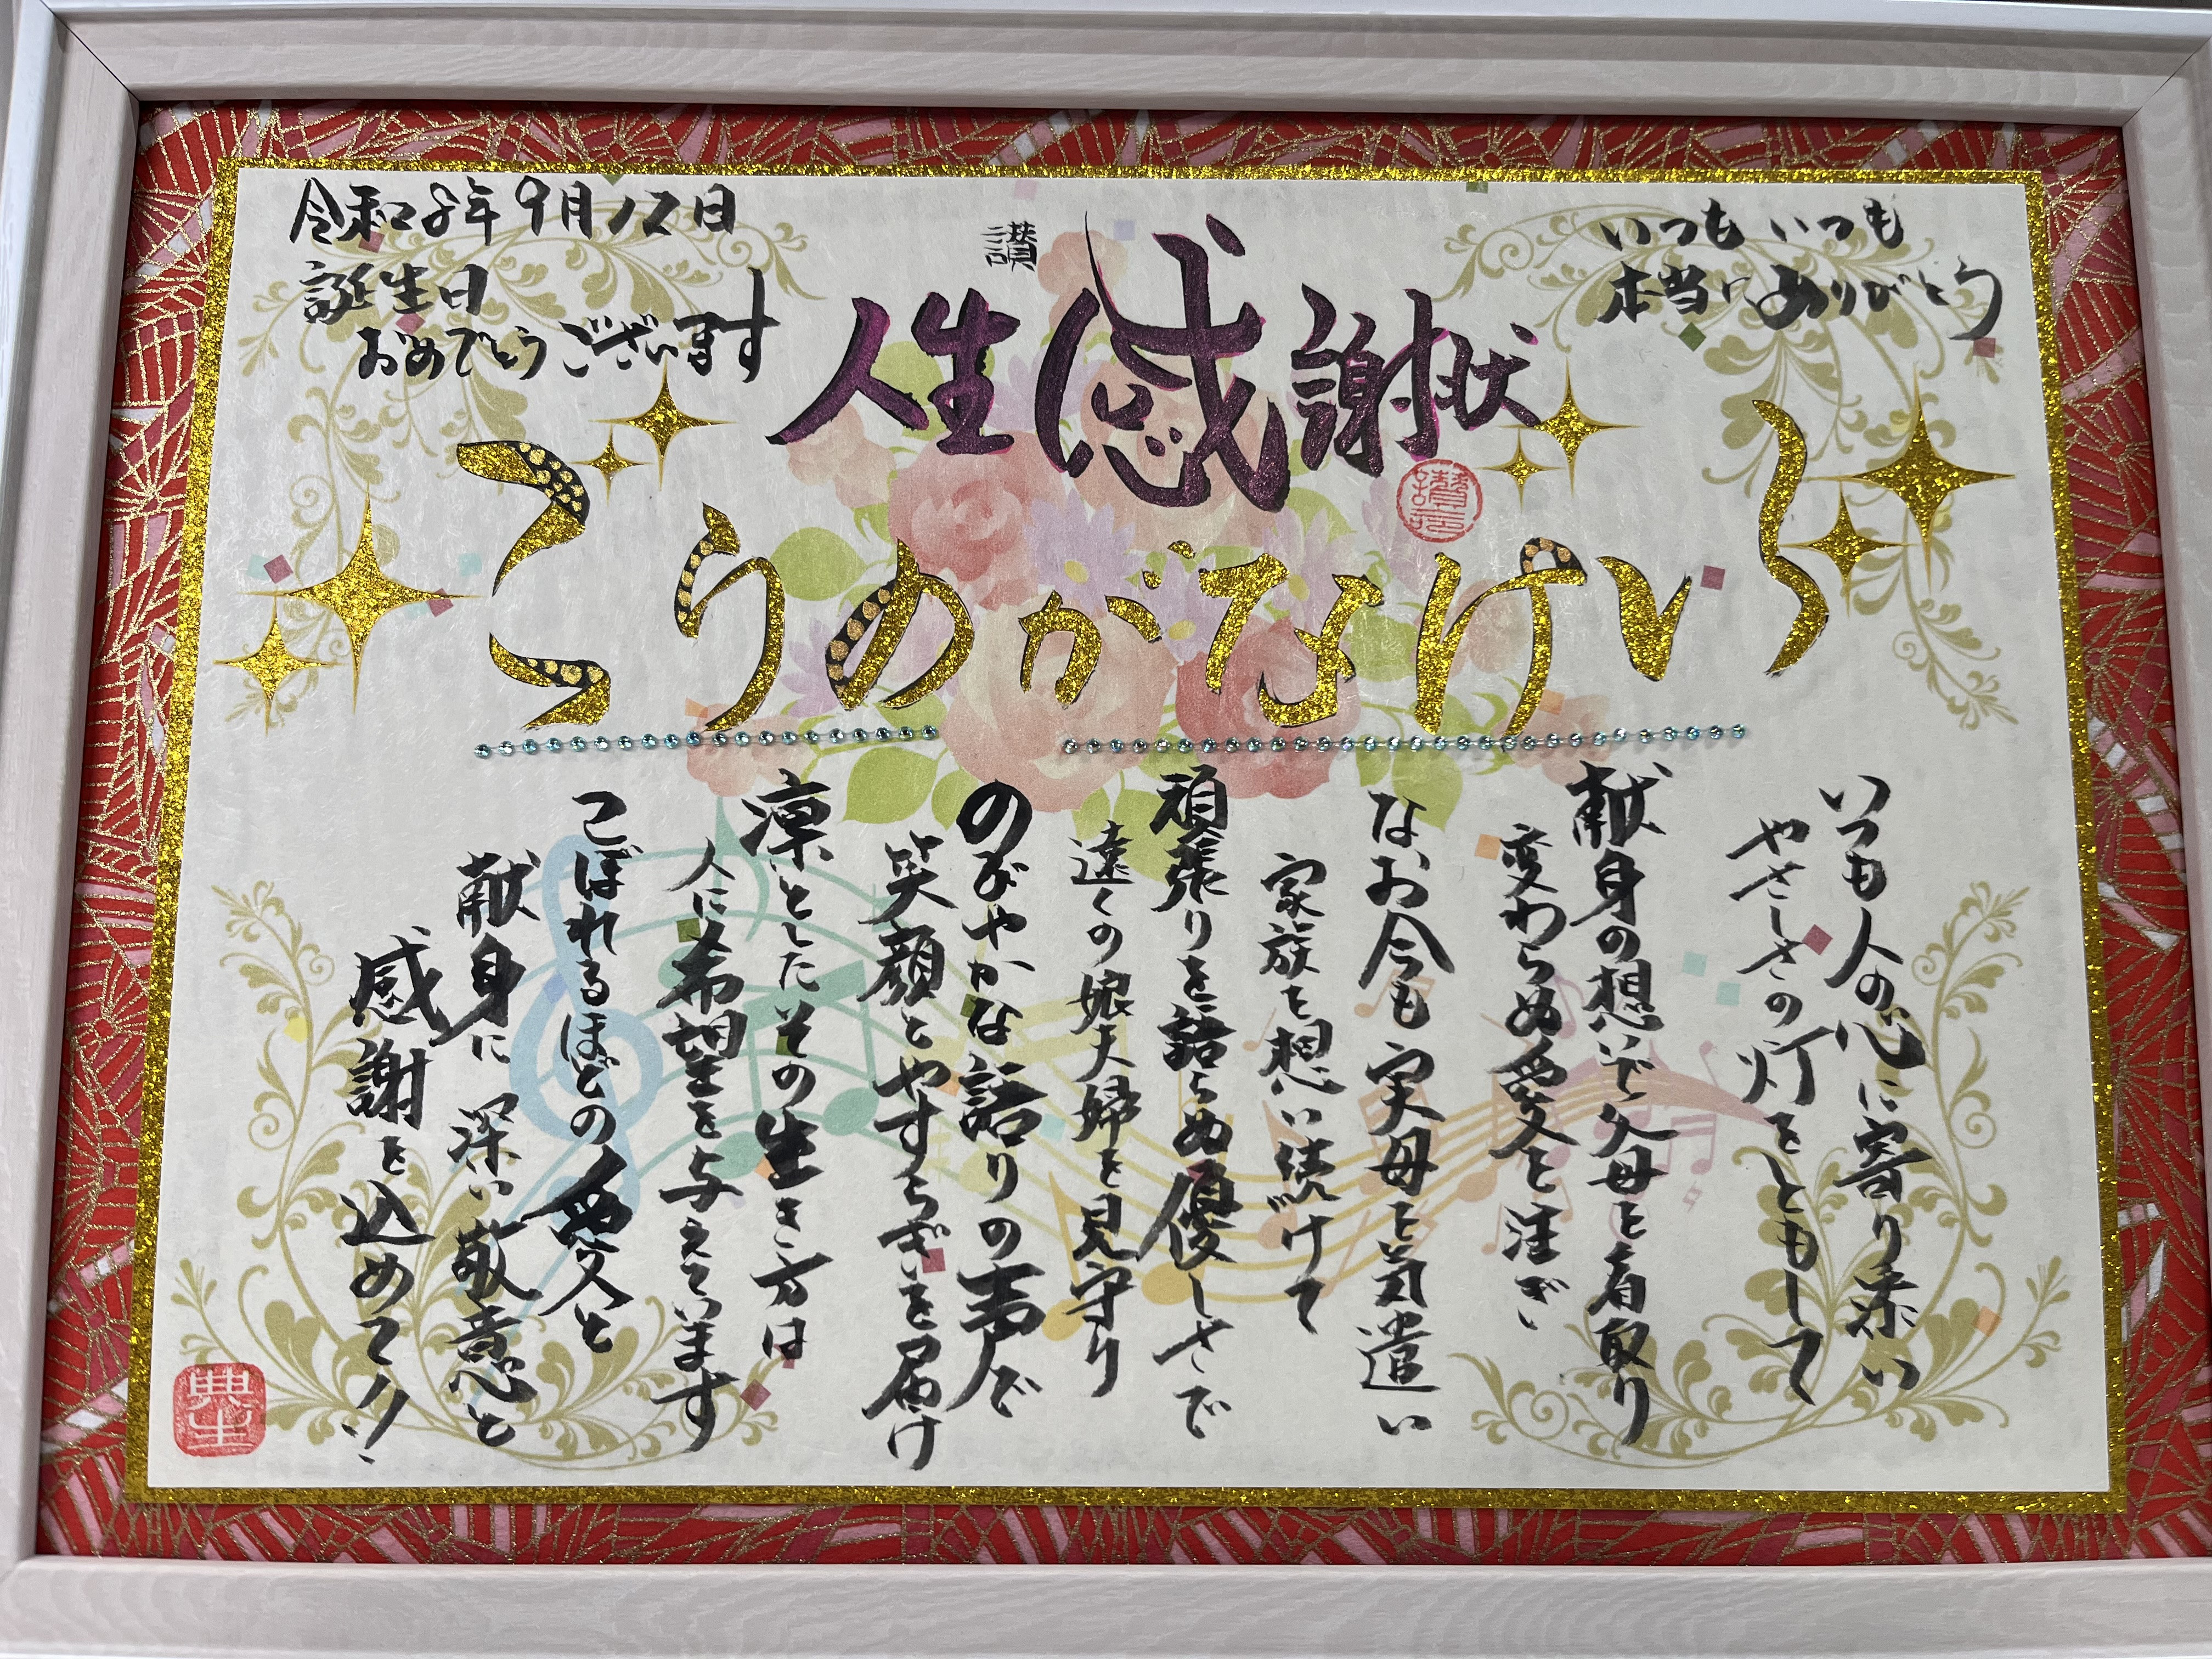 いつもいつも
本当にありがとう
令和8年9月12日
誕生日
おめでとうございます
讃
人生感謝状
いけながのりこ
いつも人の心に寄り添い
やさしさの灯をともして
献身の想いで父母を看取り
変わらぬ愛を注ぎ
なお今も実母を気遣い
家族を想い続けて
頑張りを語らぬ優しさで
遠くの娘夫婦を見守り
のびやかな語りの声で
笑顔とやすらぎを届け
凛としたその生き方は
人に希望を与えています
こぼれるほどの愛と
献身に深い敬意と
感謝を込めて!!
典生